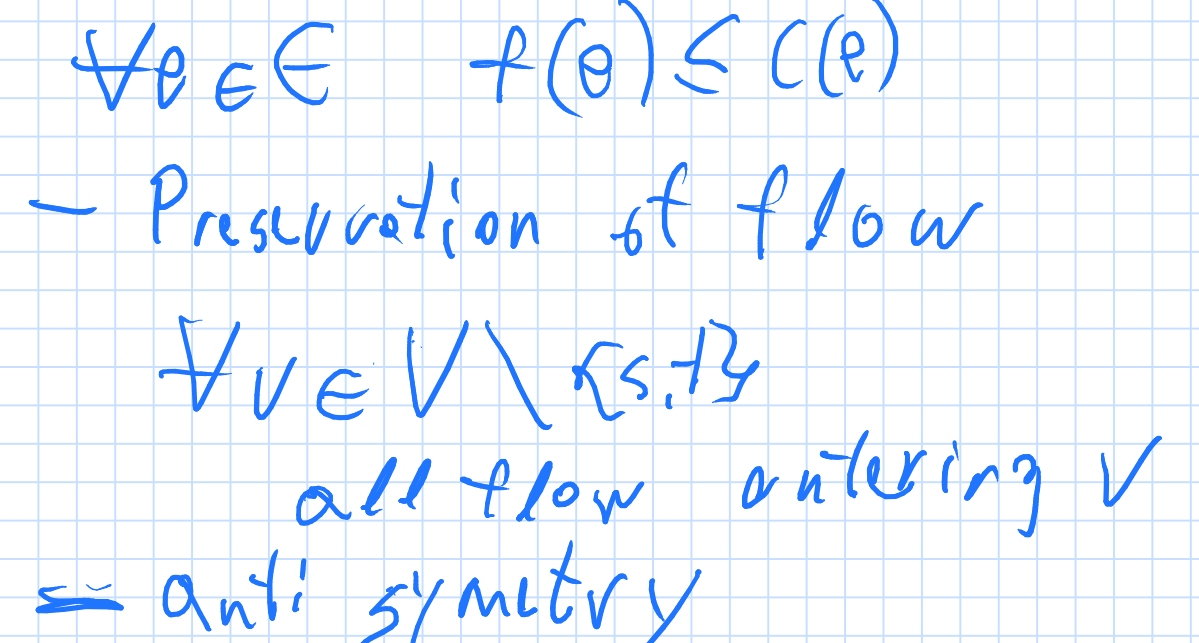 ∀e ∈ E f(e) ≤ c(e)
- Preservation of flow
∀v ∈ V \ {s,t}
all flow entering v
- anti symetry